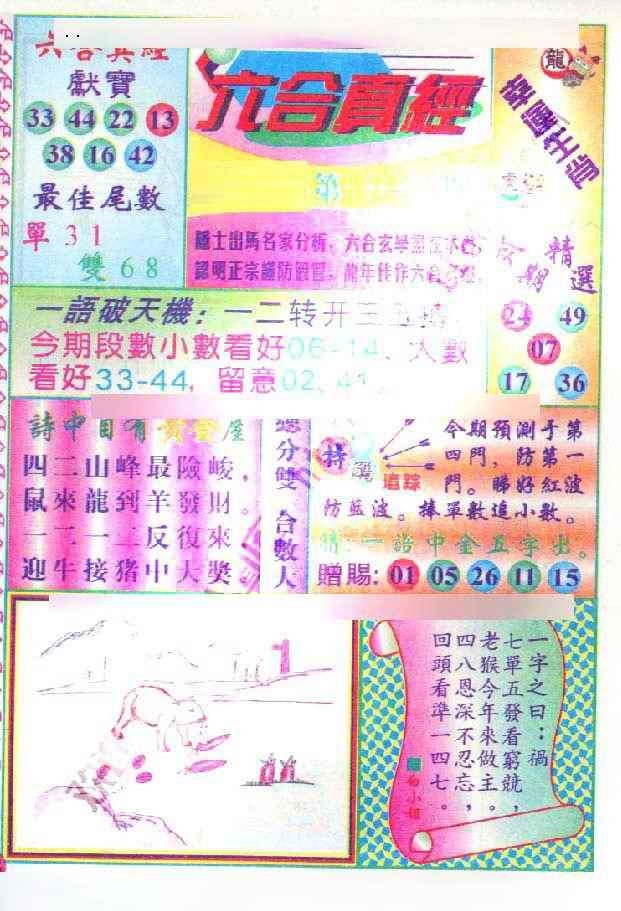 六合真經
獻寶
33 44 22 13
38 16 42
最佳尾數
單31
雙68
六合真經
龍
隱士出馬名家分析
六合玄學
認明正宗謹防假冒
龍年佳作六合
期
精選
24 49
07
17 36
一語破天機:一二转开三五
今期段數小數看好06-14、大數
看好33-44,留意02、41
詩中自有黃金屋
四二山峰最險峻,
鼠來龍到羊發財。
一二一二反復來
迎牛接猪中大獎。
總分雙 合數大
特
追踪
今期預測于第
四門,防第一
門。睇好紅波
防藍波。捧單數追小數。
猜:一語中金五字出。
贈賜:01 05 26 11 15
1
一字之曰:禍
七單五發看窮競,
老猴今年來做主。
四八恩深不忍忘,
回頭看準一四七。
白小姐